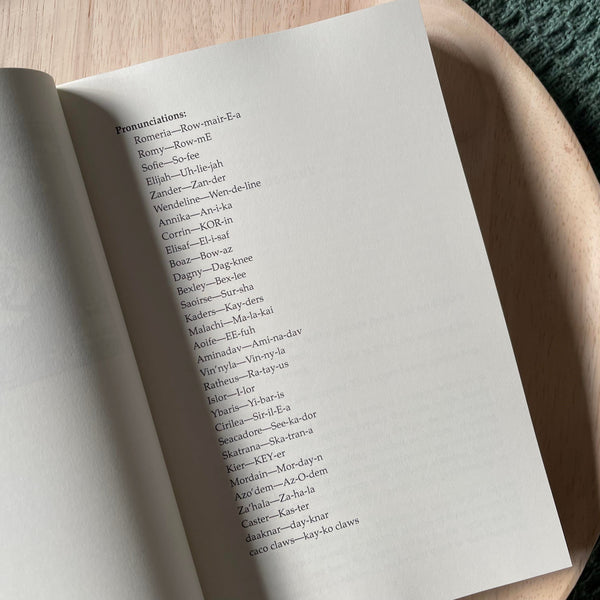 Pronunciations:
Romeria—Row-mair-E-a
Romy—Row-mE
Sofie—So-fee
Elijah—Uh-lie-jah
Zander—Zan-der
Wendeline—Wen-de-line
Annika—An-i-ka
Corrin—KOR-in
Elisaf—El-i-saf
Boaz—Bow-az
Dagny—Dag-knee
Bexley—Bex-lee
Saoirse—Sur-sha
Kaders—Kay-ders
Malachi—Ma-la-kai
Aoife—EE-fuh
Aminadav—Ami-na-dav
Vin'nyla—Vin-ny-la
Ratheus—Ra-tay-us
Islor—I-lor
Ybaris—Yi-bar-is
Cirilea—Sir-il-E-a
Seacadore—See-ka-dor
Skatrana—Ska-tran-a
Kier—KEY-er
Mordain—Mor-day-n
Azo'dem—Az-O-dem
Za'hala—Za-ha-la
Caster—Kas-ter
daaknar—day-knar
caco claws—kay-ko claws